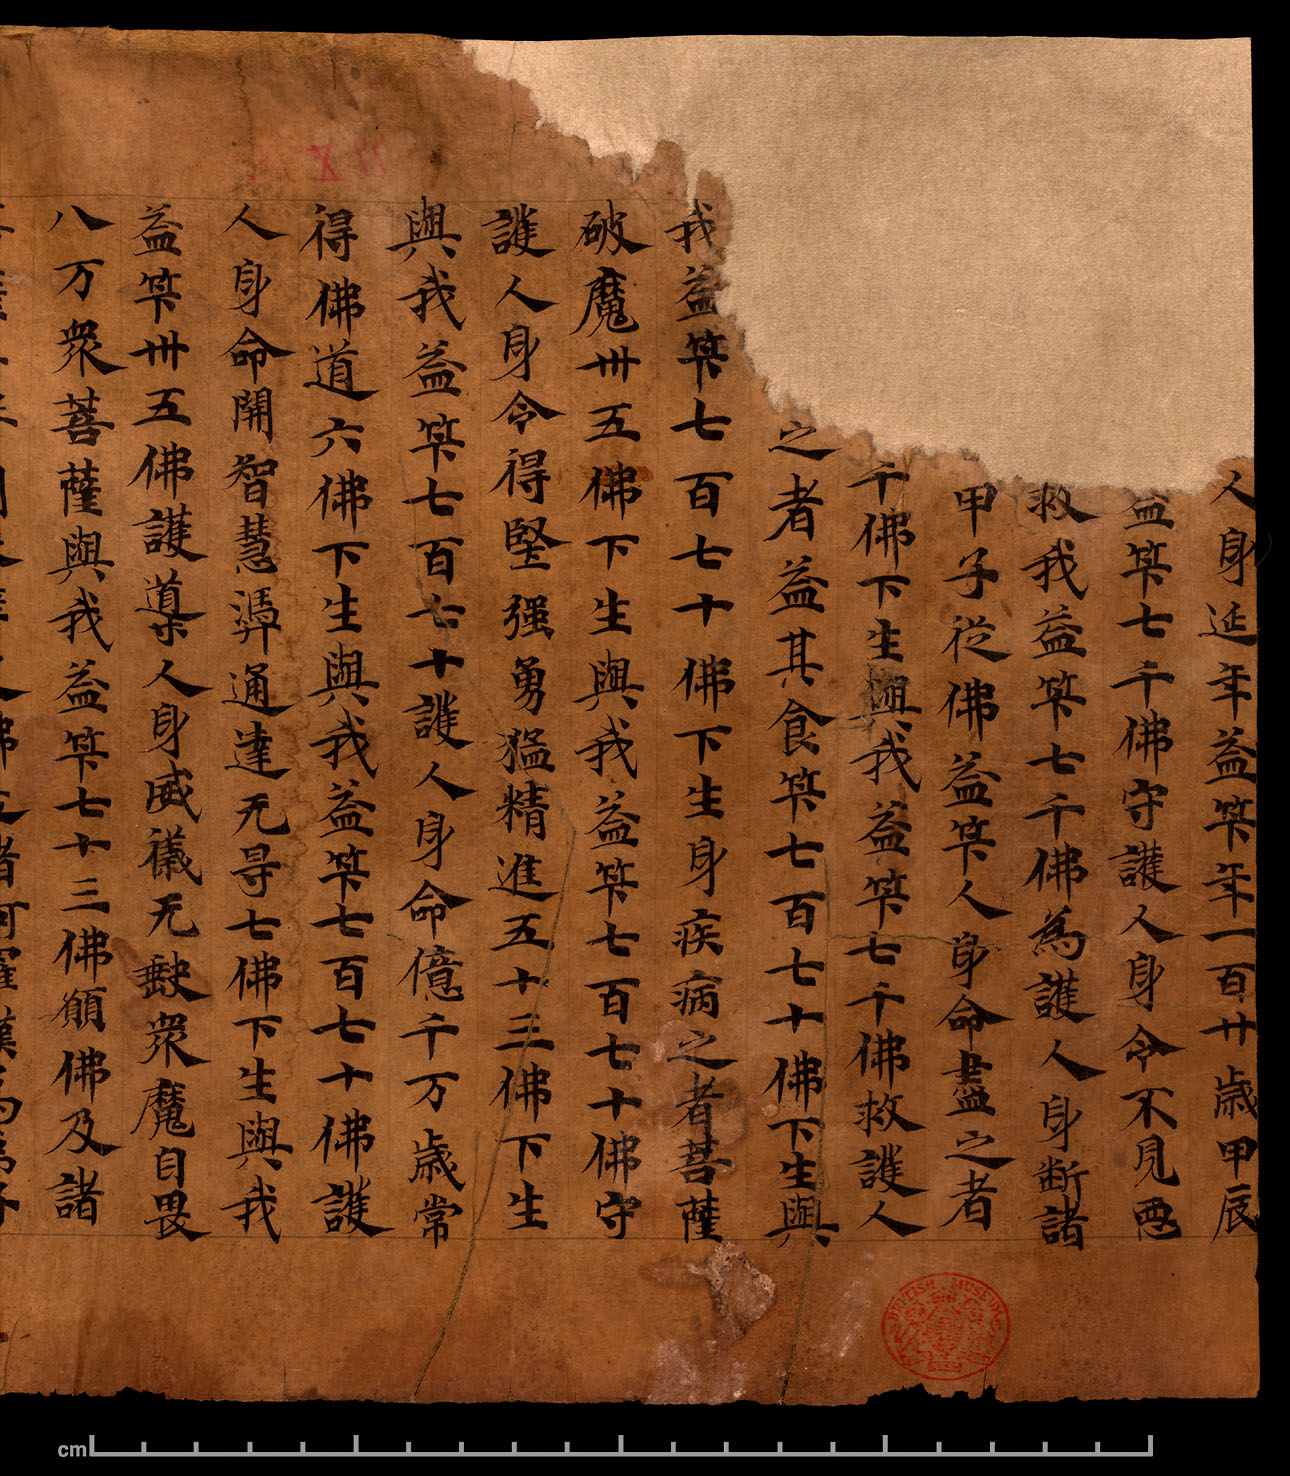 人身延年益笇年一百廿歳甲辰
益笇七千佛守護人身令不見惡
救我益笇七千佛為護人身断諸
甲子從佛益笇人身命盡之者
千佛下生與我益笇七千佛救護人
之者益其食笇七百七十佛下生與
我益笇七百七十佛下生身疾病之者菩薩
破魔卅五佛下生與我益笇七百七十佛守
護人身令得堅强勇猛精進五十三佛下生
與我益笇七百七十護人身命億千万歳常
得佛道六佛下生與我益笇七百七十佛護
人身命開智慧辯通達无㝵七佛下生與我
益笇卅五佛護導人身威儀无缺衆魔自畏
八万衆菩薩與我益笇七十三佛願佛及諸
BRITISH MUSEUM
cm